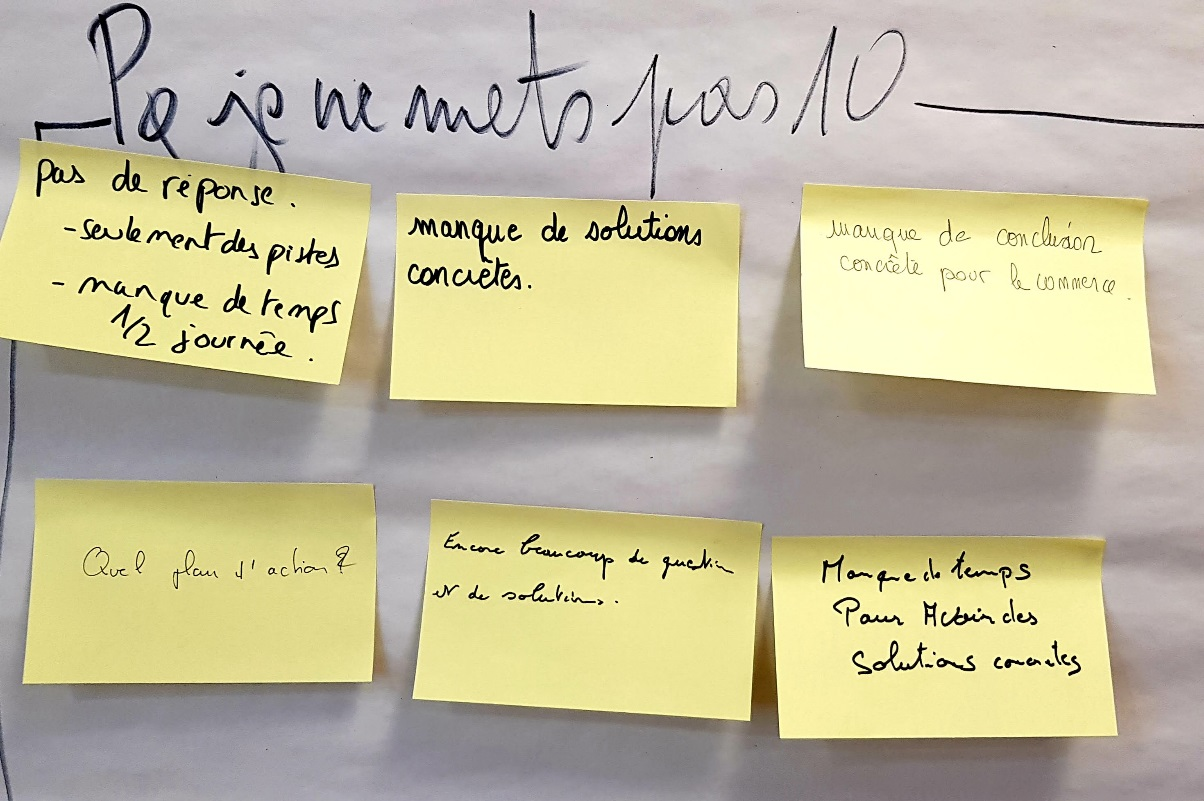 Pq je ne mets pas 10
pas de réponse.
- seulement des pistes
- manque de temps
1/2 journée.
manque de solutions
concrètes.
manque de conclusion
concrète pour le commerce.
Quel plan d'action?
Encore beaucoup de question
et de solutions.
Manque de temps
Pour des
solutions concretes